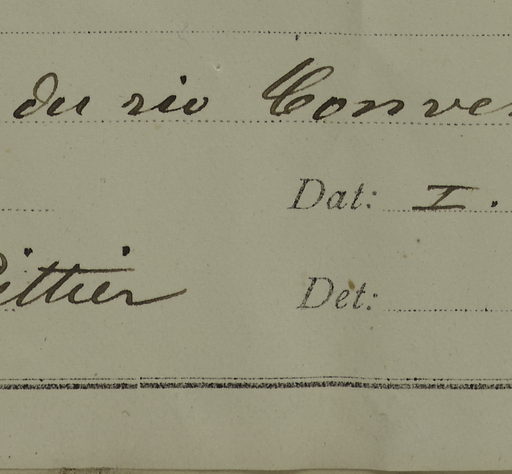 du rio Conver
Dat: I.
Pittier
Det: